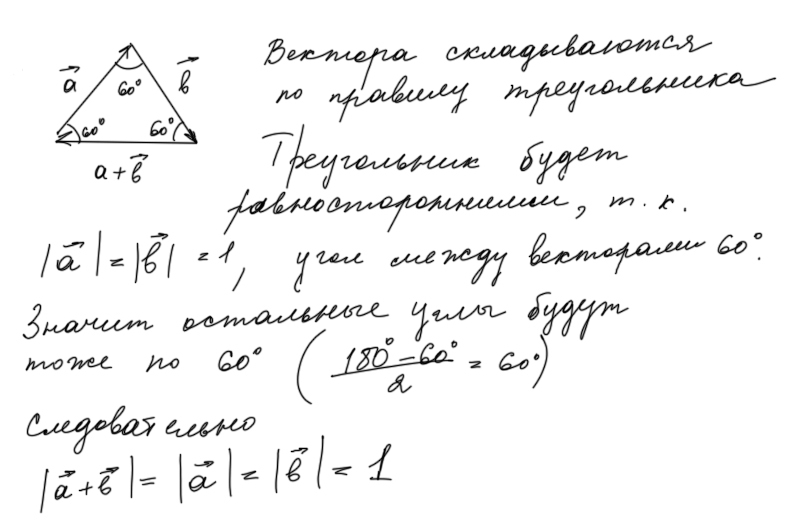 Вектора складываются
по правилу треугольника
a⃗ b⃗
60°
60° 60°
a+b⃗
Треугольник будет
равносторонним, т. к.
|a⃗| = |b⃗| = 1, угол между векторами 60°.
Значит остальные углы будут
тоже по 60° ( (180° - 60°)/2 = 60° )
Следовательно
|a⃗+b⃗| = |a⃗| = |b⃗| = 1